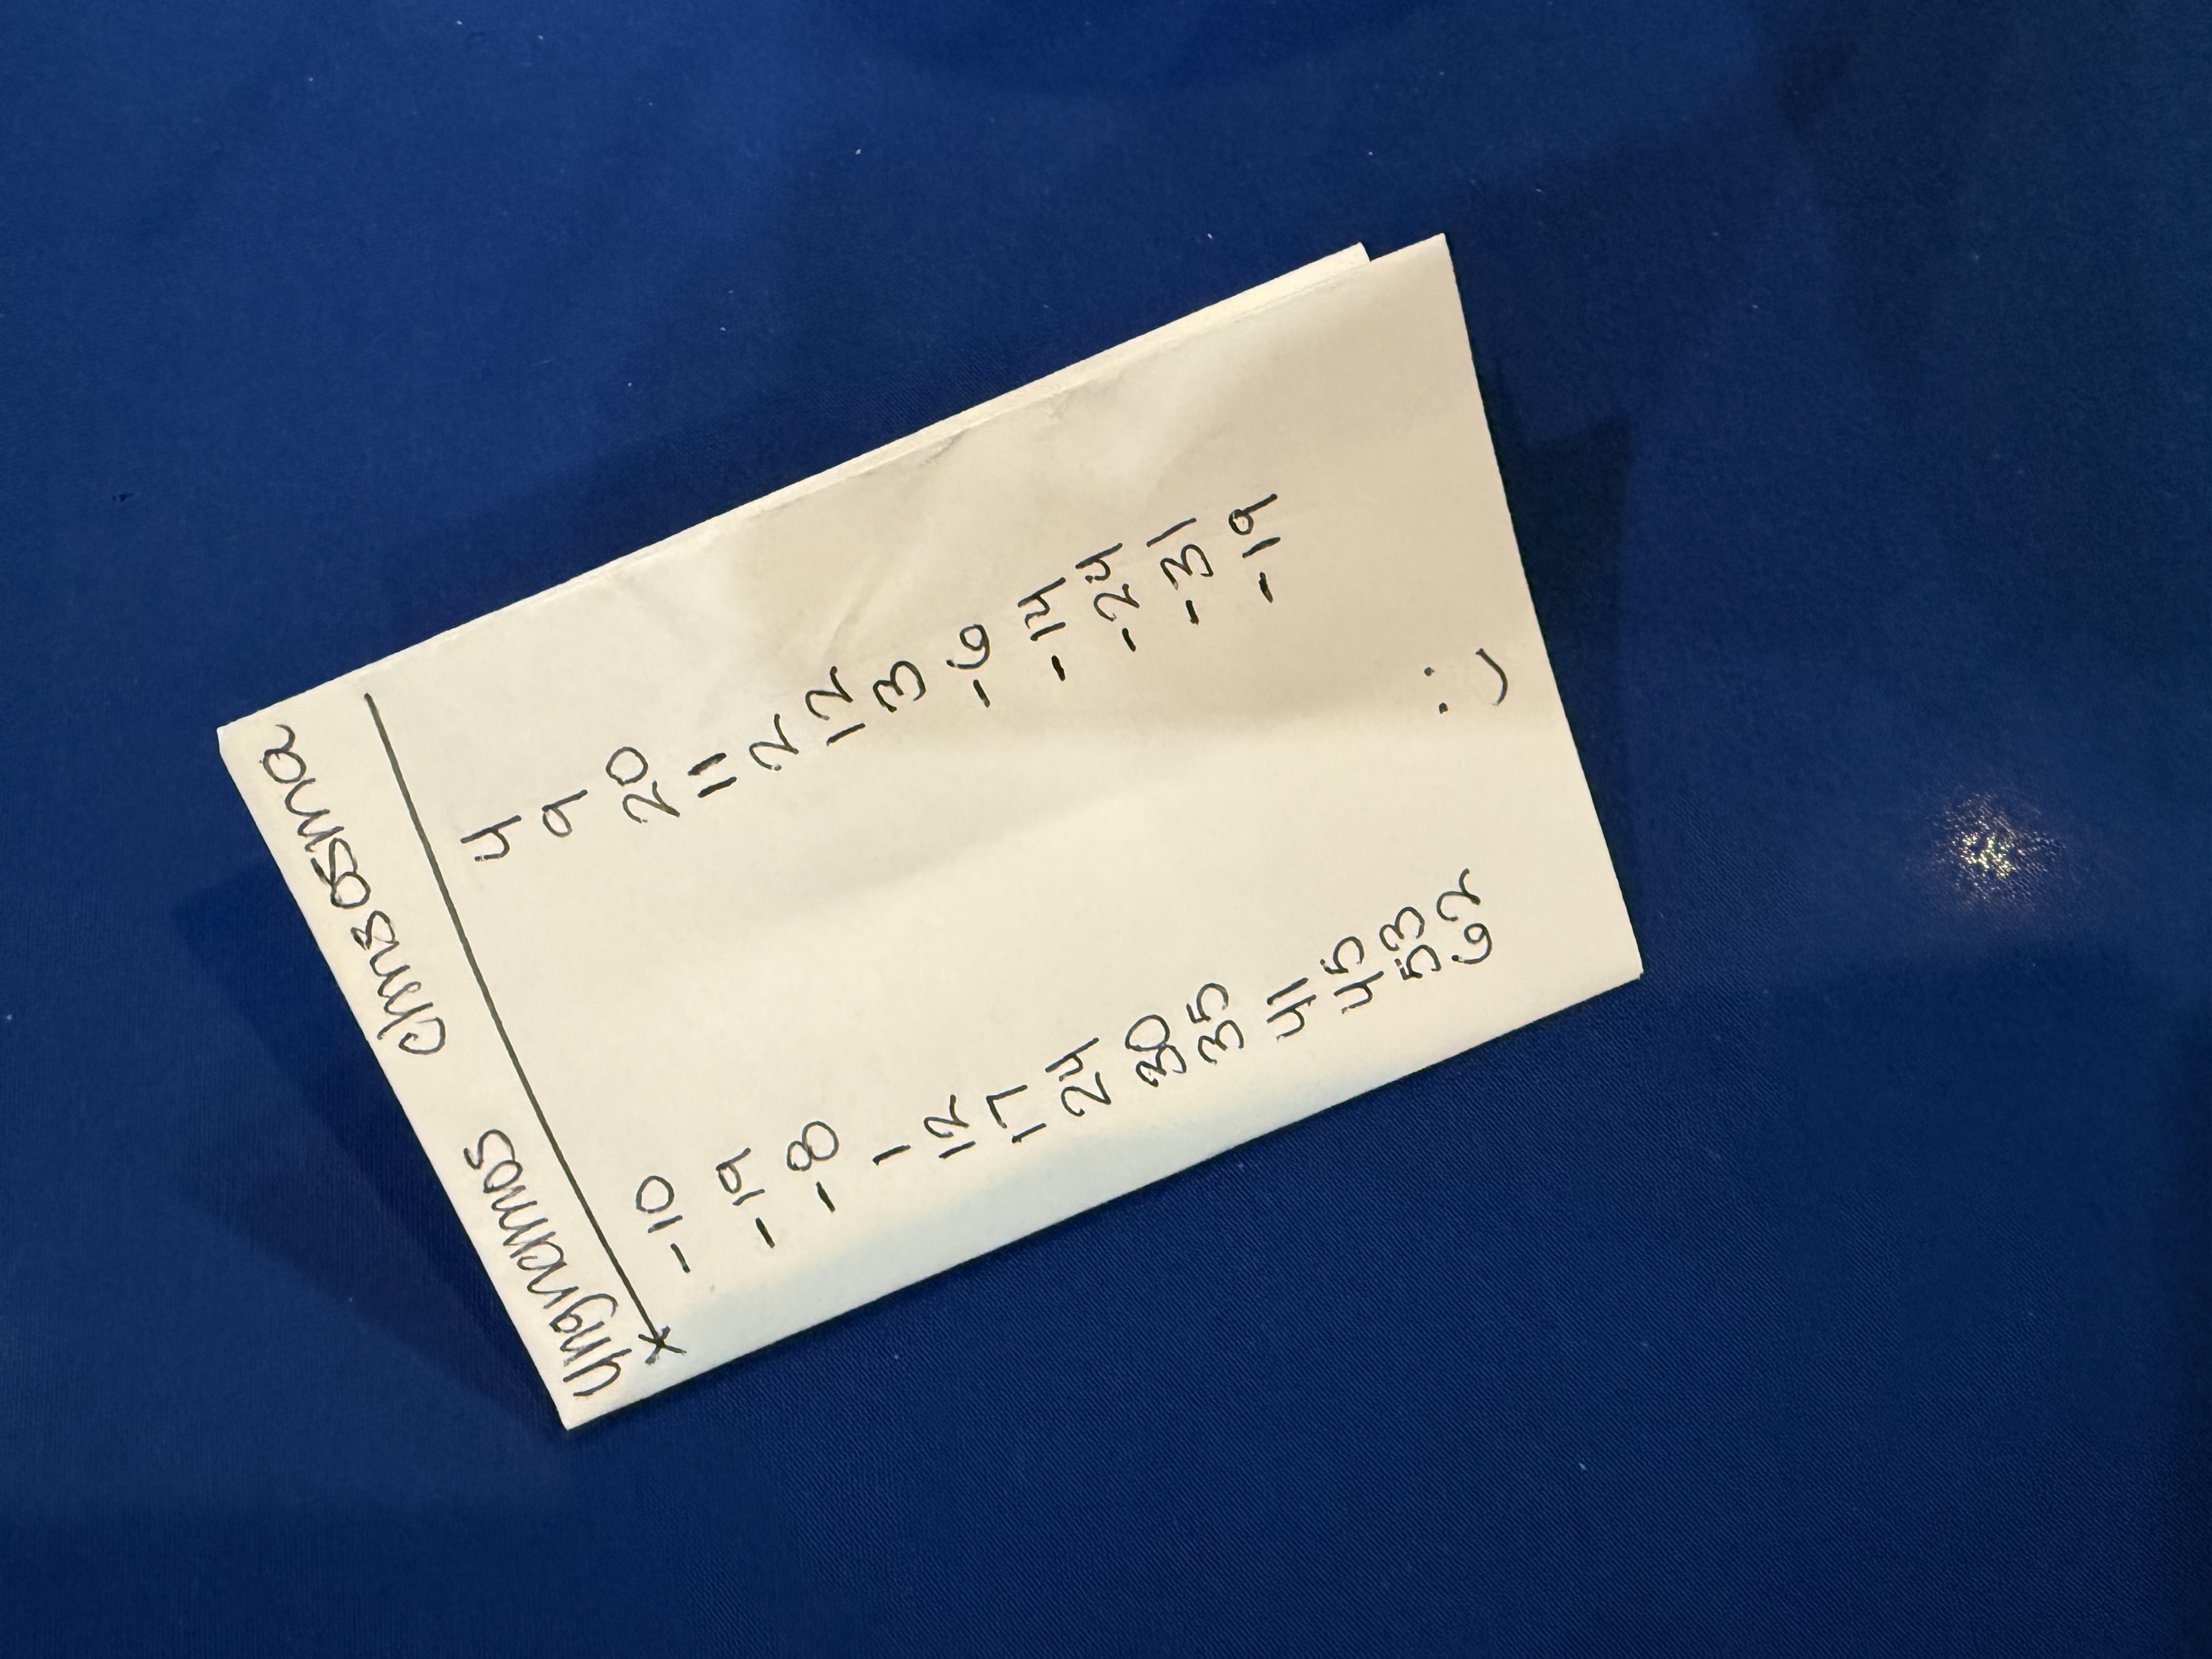 yngnamos chrisosma
x -10 4
-19 9
-8 20
1 11
12 2
17 12
24 3
30 -6
35 -14
41 -24
45 -31
53 -19
62